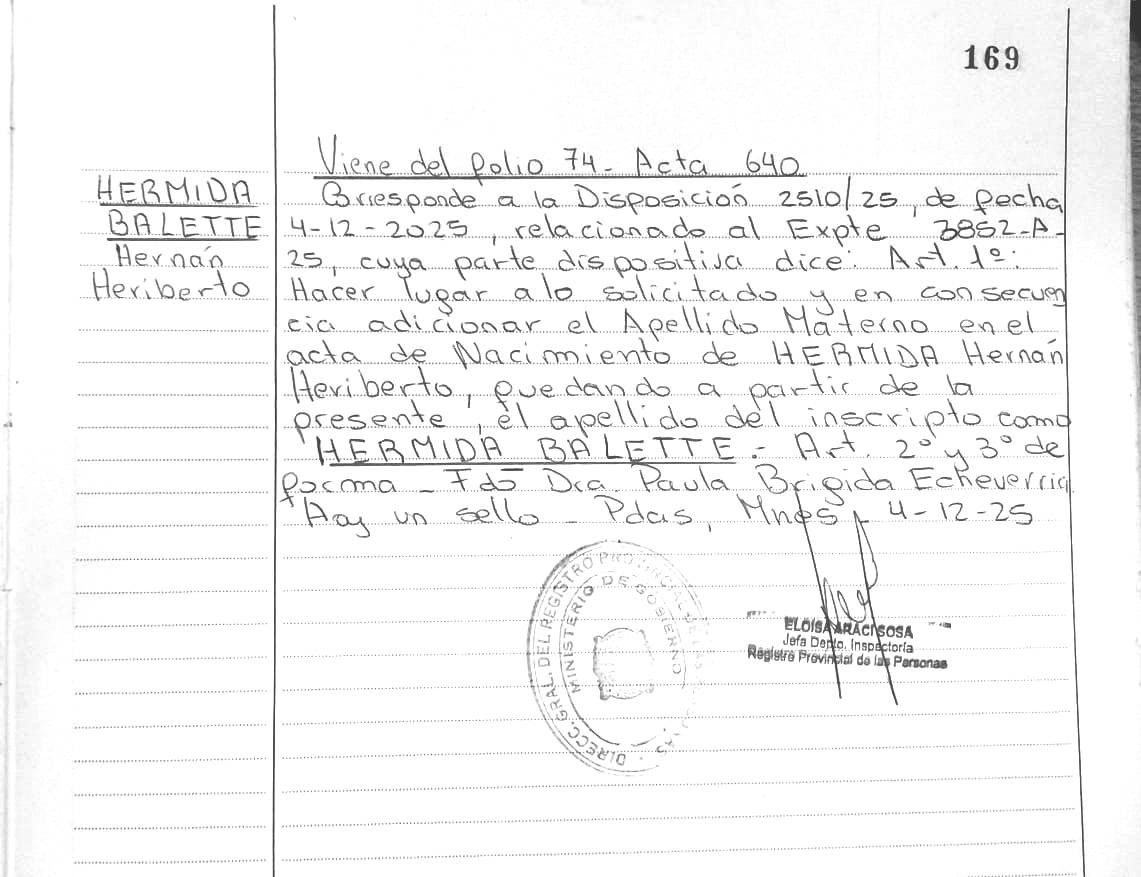 169
Viene del folio 74- Acta 640
HERMIDA
BALETTE
Hernán
Heriberto
Corresponde a la Disposición 2510/25, de fecha
4-12-2025, relacionado al Expte 3852-A-
25, cuya parte dispositiva dice: Art. 1º:
Hacer lugar a lo solicitado y en consecuen
cia adicionar el Apellido Materno en el
acta de Nacimiento de HERMIDA Hernán
Heriberto, quedando a partir de la
presente, el apellido del inscripto como
HERMIDA BALETTE.- Art. 2º y 3º de
forma - Fdo Dra. Paula Brigida Echeverria
Hay un sello - Pdas, Mnes, 4-12-25
DIRECC. GRAL. DEL REGISTRO PROVINCIAL DE LAS PERSONAS
MINISTERIO DE GOBIERNO
ELOISA ARACI SOSA
Jefa Depto. Inspectoría
Registro Provincial de las Personas